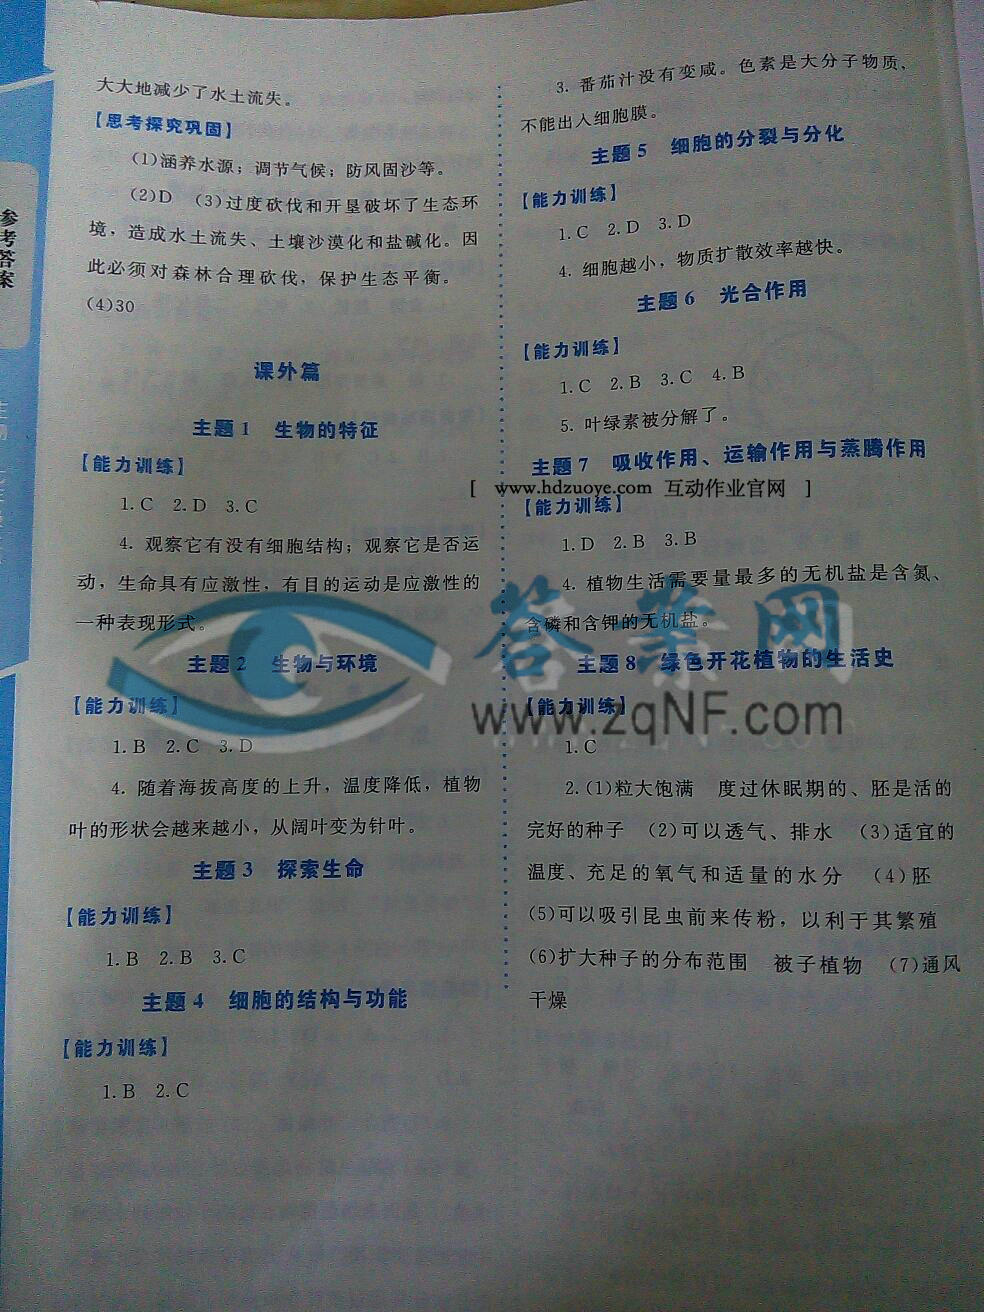 参考答案
大大地减少了水土流失。
【思考探究巩固】
(1)涵养水源；调节气候；防风固沙等。
(2)D (3)过度砍伐和开垦破坏了生态环
境，造成水土流失、土壤沙漠化和盐碱化。因
此必须对森林合理砍伐，保护生态平衡。
(4)30
课外篇
主题1 生物的特征
【能力训练】
1.C 2.D 3.C
4. 观察它有没有细胞结构；观察它是否运
动，生命具有应激性，有目的运动是应激性的
一种表现形式。
主题2 生物与环境
【能力训练】
1.B 2.C 3.D
4. 随着海拔高度的上升，温度降低，植物
叶的形状会越来越小，从阔叶变为针叶。
主题3 探索生命
【能力训练】
1.B 2.B 3.C
主题4 细胞的结构与功能
【能力训练】
1.B 2.C
3. 番茄汁没有变咸。色素是大分子物质，
不能出入细胞膜。
主题5 细胞的分裂与分化
【能力训练】
1.C 2.D 3.D
4. 细胞越小，物质扩散效率越快。
主题6 光合作用
【能力训练】
1.C 2.B 3.C 4.B
5. 叶绿素被分解了。
主题7 吸收作用、运输作用与蒸腾作用
[ www.hdzuoye.com 互动作业官网 ]
【能力训练】
1.D 2.B 3.B
4. 植物生活需要量最多的无机盐是含氮、
含磷和含钾的无机盐。
答案网
主题8 绿色开花植物的生活史
www.zqNF.com
【能力训练】
1.C
2.(1)粒大饱满 度过休眠期的、胚是活的
完好的种子 (2)可以透气、排水 (3)适宜的
温度、充足的氧气和适量的水分 (4)胚
(5)可以吸引昆虫前来传粉，以利于其繁殖
(6)扩大种子的分布范围 被子植物 (7)通风
干燥